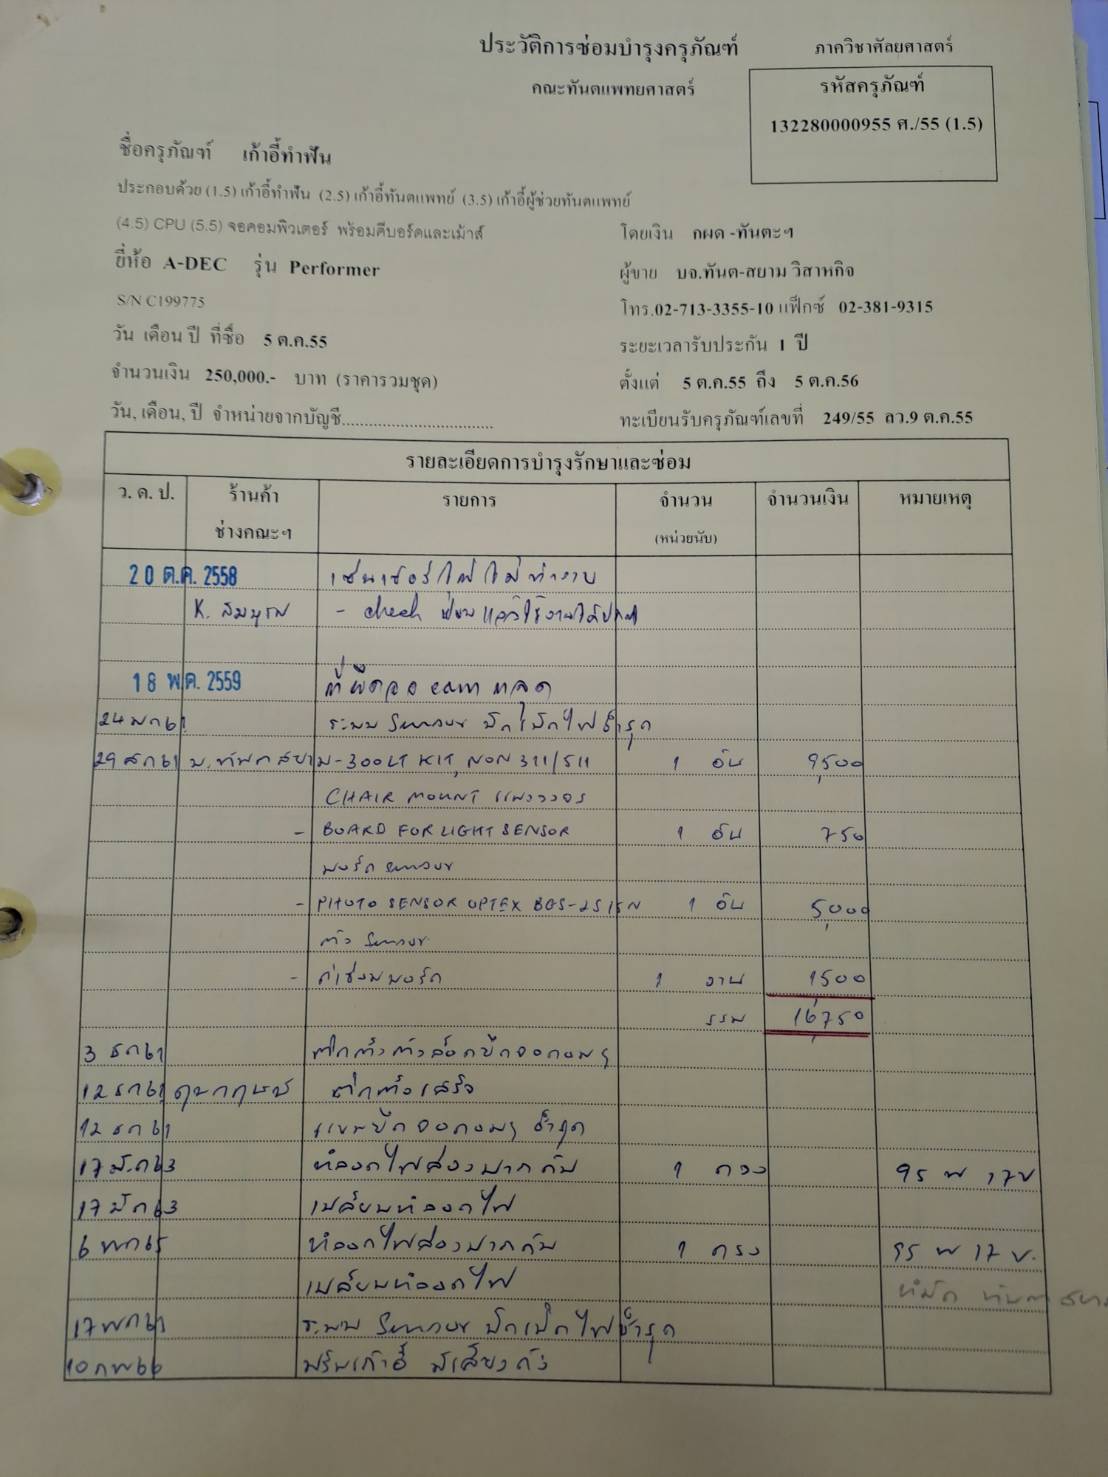 ประวัติการซ่อมบำรุงครุภัณฑ์
ภาควิชาศัลยศาสตร์
คณะทันตแพทยศาสตร์
รหัสครุภัณฑ์
132280000955 ศ./55 (1.5)
ชื่อครุภัณฑ์ เก้าอี้ทำฟัน
ประกอบด้วย (1.5) เก้าอี้ทำฟัน (2.5) เก้าอี้ทันตแพทย์ (3.5) เก้าอี้ผู้ช่วยทันตแพทย์
(4.5) CPU (5.5) จอคอมพิวเตอร์ พร้อมคีบอร์ดและเม้าส์
โดยเงิน กผด -ทันตะฯ
ยี่ห้อ A-DEC รุ่น Performer
ผู้ขาย บจ.ทันต-สยาม วิสาหกิจ
S/N C199775
โทร.02-713-3355-10 แฟ็กซ์ 02-381-9315
วัน เดือน ปี ที่ซื้อ 5 ต.ค.55
ระยะเวลารับประกัน 1 ปี
จำนวนเงิน 250,000.- บาท (ราคารวมชุด)
ตั้งแต่ 5 ต.ค.55 ถึง 5 ต.ค.56
วัน, เดือน, ปี จำหน่ายจากบัญชี................................
ทะเบียนรับครุภัณฑ์เลขที่ 249/55 ลว.9 ต.ค.55
รายละเอียดการบำรุงรักษาและซ่อม
ว. ด. ป. ร้านค้า รายการ จำนวน จำนวนเงิน หมายเหตุ
ช่างคณะฯ (หน่วยนับ)
20 ต.ค. 2558 เซ่นเซอร์ไฟไม่ทำงาน
K. สมบูรณ์ - check แล้วใช้งานได้ปกติ
18 พ.ค. 2559 ที่ยึดจอ หลุด
24 ชำรุด
29 สค 61 บ.ทันตสยาม - 300LT KIT, NON 311/511 1 อัน 9,500
CHAIR MOUNT แผงวงจร
- BOARD FOR LIGHT SENSOR 1 อัน 750
บอร์ด sensor
- PHOTO SENSOR OPTEX BGS-2S15N 1 อัน 5,000
ตัว Sensor
- ค่าซ่อมบอร์ด 1 งาน 1,500
รวม 16,750
3 ธค 61 ติดตั้งตัวล็อก
12 ธค 61 ติดตั้งเสร็จ
12 ธค 61 ชำรุด
17 มีค 63 หลอดไฟส่องปากดับ 1 ดวง 95 W 17V
17 มีค 63 เปลี่ยนหลอดไฟ
6 พค 65 หลอดไฟส่องปากดับ 1 ดวง 95 W 17 V.
เปลี่ยนหลอดไฟ
17 พค 65 ระบบ Sensor ปิดเปิดไฟชำรุด
10 กพ 66 ปรับเก้าอี้ มีเสียงดัง